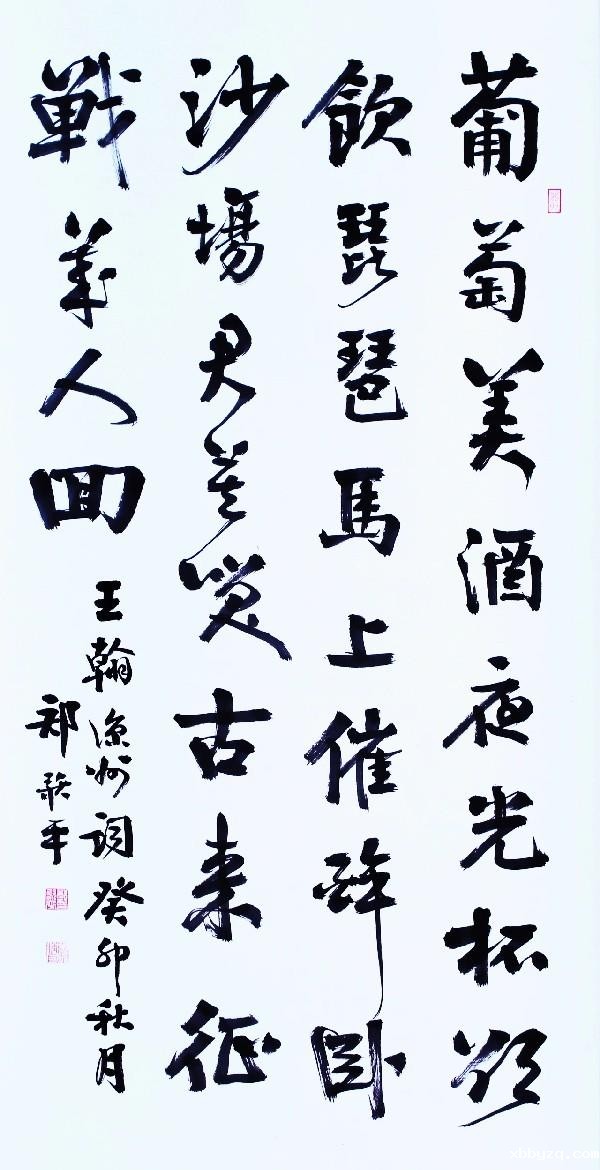 葡萄美酒夜光杯欲
飲琵琶馬上催醉卧
沙場君莫笑古来征
戰幾人回
王翰涼州詞癸卯秋月
郑平